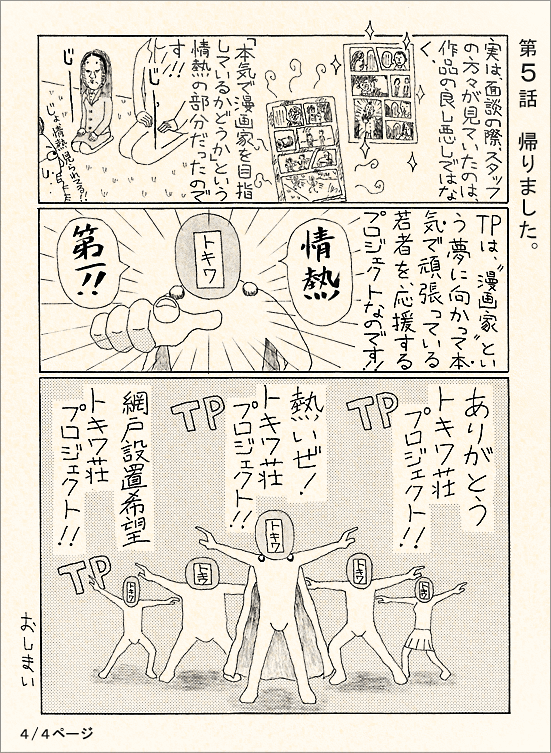 第5話 帰りました。
実は、面談の際、スタッフ
の方々が見ていたのは、
作品の良し悪しではな
く、
「本気で漫画家を目指
しているかどうか」という
情熱の部分だったので
す!!!
じ
じー
じっ…情熱見られてる!!
TPは、“漫画家”とい
う夢に向かって本
気で頑張っている
若者を、応援する
プロジェクトなのです!!
情熱
トキワ
第一!!
ありがとう
トキワ荘
プロジェクト!!
TP
熱いぜ!
トキワ荘
プロジェクト!!
TP
網戸設置希望
トキワ荘
プロジェクト!!
TP
トキワ
トキワ
トキワ
トキワ
トキワ
おしまい
4/4ページ